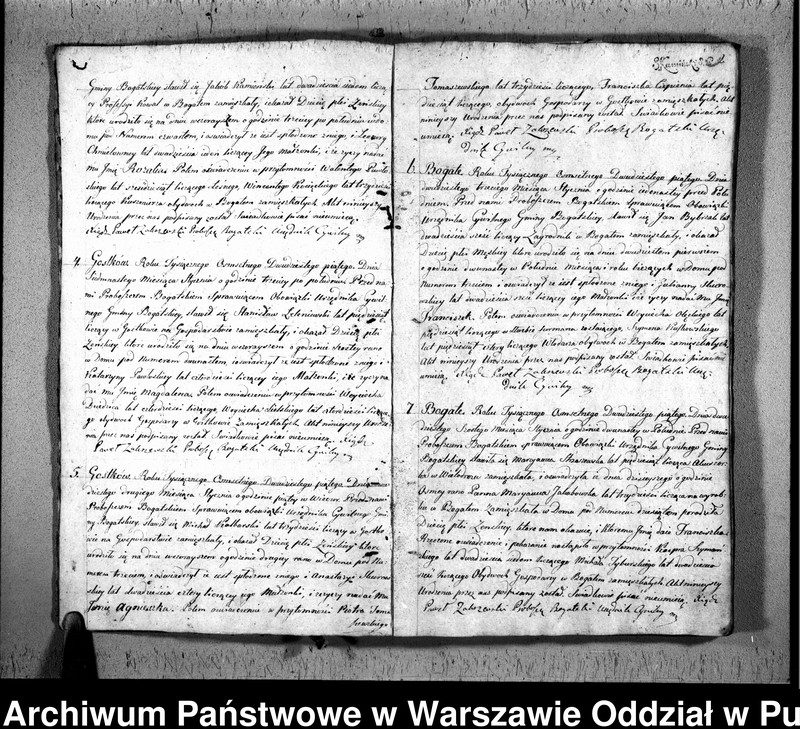 Gminy Bogatskiey stawił się Jakób Kamiński lat dwadzieścia siedem liczą-
cy Professyi Kowal w Bogatem zamieszkały, i okazał Dziecię płci Żeńskiey
które urodziło się na dniu wczorayszem o godzinie trzeciey po południu w do-
mu pod Numerem czwartem, i oświadczył iż iest spłodzone z niego, i
lat dwadzieścia ieden liczącey Jego małżonki, i że życzy nadać
mu Imię Rozalia. Po tem oświadczeniu w przytomności Walentego
lat sześćdziesiąt liczącego Wincentego lat trzydzieści
liczącego obydwóch w Bogatem zamieszkałych. Akt ninieyszy
Urodzenia przez nas podpisany został Świadkowie pisać nieumieią.
Xiądz Paweł Zakrzewski Proboszcz Bogatski Urzędnik Cywilny mp
4. Gostków Roku Tysiącznego Osmsetnego Dwudziestego piątego. Dnia
Siedmnastego Miesiąca Stycznia o godzinie trzeciey po południu Przed na-
mi Proboszczem Bogatskim Sprawuiącem Obowiązki Urzędnika Cywil-
nego Gminy Bogatskiey, stawił się Stanisław Zeleniewski lat pięćdziesiąt
liczący w Gostkowie na Gospodarstwie zamieszkały, i okazał Dziecię płci
Żeńskiey które urodziło się na dniu wczorayszem o godzinie szóstey rano
w Domu pod Numerem dwunastem, i oświadczył iż iest spłodzone z niego i
Katarzyny Pawłoskiey lat czterdzieści liczącey iego Małżonki, i że życzy na-
dać mu Imię Magdalena. Po tem oświadczeniu w przytomności Woyciecha
lat czterdzieści liczącego, Woyciecha lat czterdzieści liczące-
go obydwóch Gospodarzy w Gostkowie Zamieszkałych. Akt ninieyszy Urodze-
nia przez nas podpisany został Świadkowie pisać nieumieią. Xiądz
Paweł Zakrzewski Proboszcz Bogatski Urzędnik Cywilny mp
5. Gostków Roku Tysiącznego Osmsetnego Dwudziestego piątego Dnia dwu-
dziestego drugiego Miesiąca Stycznia o godzinie piątey w Wieczor Przed nami
Proboszczem Bogatskim Sprawuiącem obowiązki Urzędnika Cywilnego Gmi-
ny Bogatskiey, Stawił się Michał lat trzydzieści liczący w Gostko-
wie na Gospodarstwie zamieszkały, i okazał Dziecię płci Żeńskiey które
urodziło się na dniu wczorayszem o godzinie drugiey rano w Domu pod Nu-
merem trzecim, i oświadczył iż iest spłodzone z niego i Anastazyi
lat dwadzieścia cztery liczącey iego Małżonki, i że życzy nadać Mu
Imię Agnieszka. Po tem oświadczeniu w przytomności Piotra Toma-
szewskiego
Kamiński
Tomaszewskiego lat trzydzieści liczącego, Franciszka lat pię-
dziesiąt liczącego, obydwóch Gospodarzy w Gostkowie zamieszkałych. Akt
ninieyszy Urodzenia przez nas podpisany został Świadkowie pisać nie
umieią. Xiądz Paweł Zakrzewski Proboszcz Bogatski Urzę-
dnik Cywilny mp
6. Bogate Roku Tysiącznego Osmsetnego Dwudziestego piątego. Dnia
dwudziestego trzeciego Miesiąca Stycznia o godzinie iedenastey przed Połu-
dniem. Przed nami Proboszczem Bogatskim Sprawuiącem Obowiązki
Urzędnika Cywilnego Gminy Bogatskiey, stawił się Jan lat
dwadzieścia sześć liczący Zagrodnik w Bogatem zamieszkały, i okazał
Dziecię płci Męskiey które urodziło się na dniu dwudziestem pierwszem
o godzinie dwunastey w Południe Miesiąca i roku bieżących w Domu pod
Numerem trzecim i oświadczył iż iest spłodzone z niego i Julianny
lat dwadzieścia sześć liczącey iego Małżonki i że życzy nadać Mu Imię
Franciszek. Po tem oświadczeniu w przytomności Woyciecha lat
pięćdziesiąt liczącego Szymona
lat pięćdziesiąt cztery liczącego obydwóch w Bogatem zamieszkałych
Akt ninieyszy Urodzenia przez nas podpisany został Świadkowie pisać nie
umieią. Xiądz Paweł Zakrzewski Proboszcz Bogatski Urzę-
dnik Cywilny mp
7. Bogate Roku Tysiącznego Osmsetnego Dwudziestego piątego. Dnia dwu-
dziestego Szóstego Miesiąca Stycznia o godzinie dwunastey w Południe. Przed nami
Proboszczem Bogatskim sprawuiącem Obowiązki Urzędnika Cywilnego Gminy
Bogatskiey stawiła się Maryanna lat pięćdziesiąt licząca Akuszer-
ka w zamieszkała, i oświadczyła iż dnia dzisieyszego o godzinie
Osmey rano Panna Maryanna Jakubowska lat trzydzieści licząca na wyrob-
ku w Bogatem zamieszkała w domu pod Numerem dziesiątem porodziła
Dziecię płci Żeńskiey, które nam okazuie, i któremu Imię daie Franciszka.
Rzeczone oświadczenie, i pokazanie nastąpiło w przytomności Kacpra
lat dwadzieścia siedem liczącego Michała lat dwadzieścia
sześć liczącego Obydwóch Gospodarzy w Bogatem zamieszkałych Akt ninieyszy
Urodzenia przez nas podpisany został. Świadkowie pisać nieumieią. Xiądz
Paweł Zakrzewski Proboszcz Bogatski Urzędnik Cywilny mp
Archiwum Państwowe w Warszawie Oddział w Pu